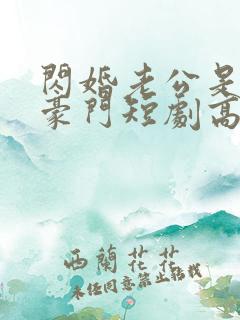 閃婚老公是
豪門短劇高
西蘭花花
未经同意禁止转载